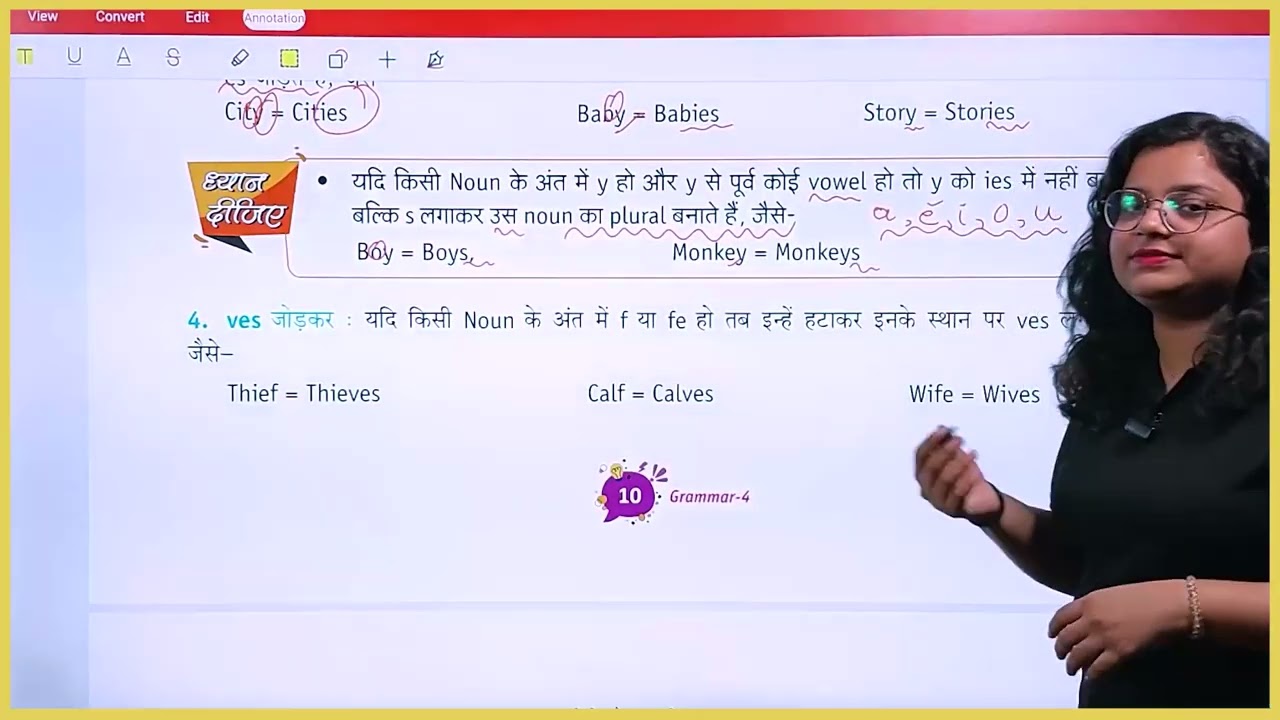 View Convert Edit Annotation
T U A S
City = Cities Baby = Babies Story = Stories
ध्यान दीजिए
• यदि किसी Noun के अंत में y हो और y से पूर्व कोई vowel हो तो y को ies में नहीं
बल्कि s लगाकर उस noun का plural बनाते हैं, जैसे-
a, e, i, o, u
Boy = Boys, Monkey = Monkeys
4. ves जोड़कर : यदि किसी Noun के अंत में f या fe हो तब इन्हें हटाकर इनके स्थान पर ves
जैसे–
Thief = Thieves Calf = Calves Wife = Wives
10 Grammar-4